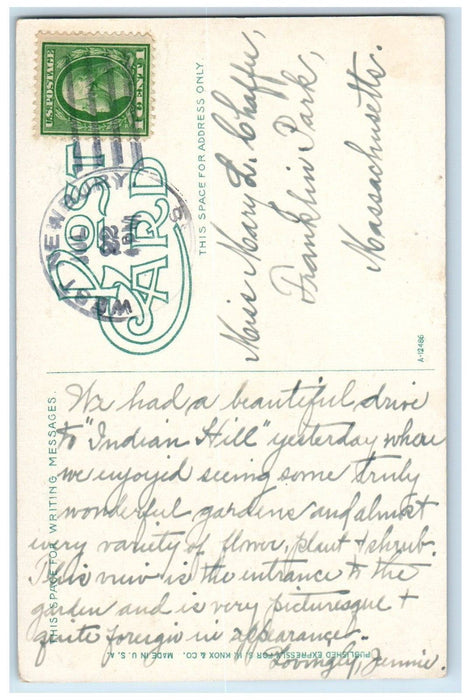 U.S. POSTAGE
1 CENT 1
POST CARD
WEST NEWBURY
22
THIS SPACE FOR ADDRESS ONLY.
Miss Mary L. Chaffin,
Franklin Park,
Massachusetts.
A-12486
THIS SPACE FOR WRITING MESSAGES.
We had a beautiful drive
to "Indian Hill" yesterday where
we enjoyed seeing some truly
wonderful gardens and almost
every variety of flower, plant + shrub.
This view is the entrance to the
garden and is very picturesque +
quite foreign in appearance.
Lovingly, Jennie.
PUBLISHED EXPRESSLY FOR S. H. KNOX & CO. MADE IN U. S. A.